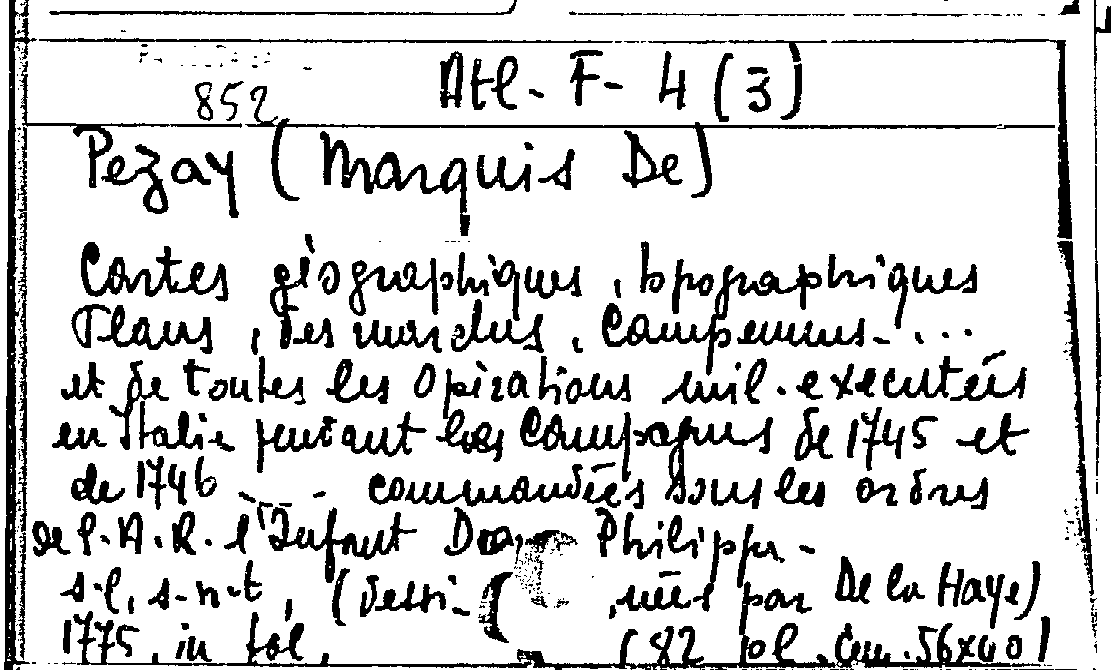 852 Atl- F- 4 (3)
Pezay (Marquis De)
Cartes géographiques, topographiques
Plans, des marches, Campemens-...
et de toutes les Opèrations mil. executées
en Italie pendant les Campagnes de 1745 et
de 1746 - - - commandées sous les ordres
de S.A.R. l'Infant Don Philippe-
s-l, s-n-t, (dessi- nées par De la Haye)
1775, in fol, (82 pl. Cm. 56x40)